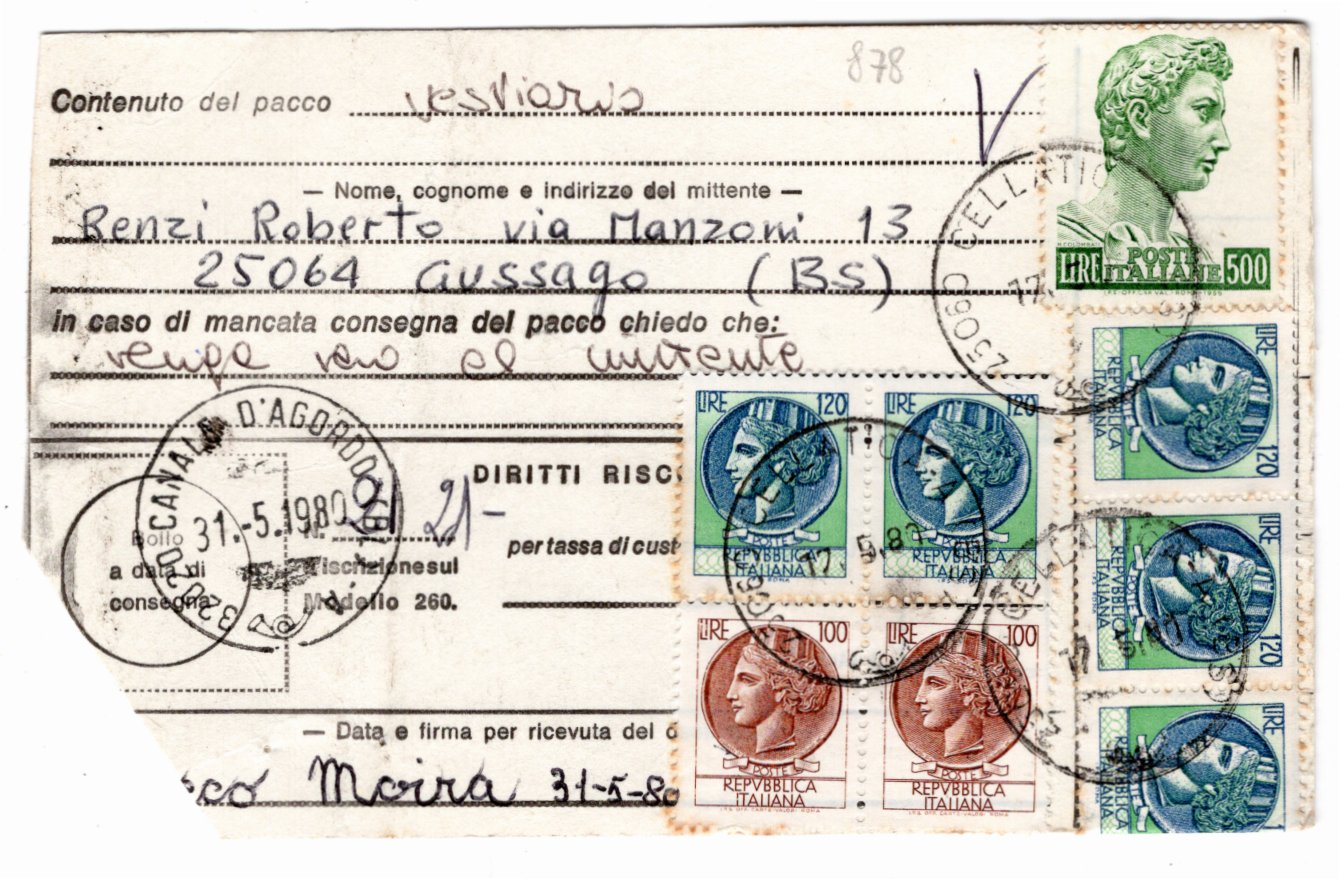 878
Contenuto del pacco vestiario
V
— Nome, cognome e indirizzo del mittente —
Renzi Roberto via Manzoni 13
25064 Gussago (BS)
in caso di mancata consegna del pacco chiedo che:
venga reso al mittente
25060 CELLATICA
LIRE POSTE ITALIANE 500
32020 CANALE D'AGORDO
31.-5.1980
21-
DIRITTI RISC
Bollo
a data di
consegna
N.
per tassa di cust
d'iscrizione sul
Modello 260.
LIRE 120
REPVBBLICA
ITALIANA
ROMA
LIRE 120
REPVBBLICA
ITALIANA
CELLATICA
17. 5.80
LIRE 100
POSTE
REPVBBLICA
ITALIANA
I.P.S. OFF. CARTE-VALORI ROMA
LIRE 100
POSTE
REPVBBLICA
ITALIANA
I.P.S. OFF. CARTE-VALORI ROMA
LIRE 120
REPVBBLICA
ITALIANA
LIRE 120
POSTE
REPVBBLICA
ITALIANA
CELLATICA
LIRE
POSTE
REPVBBLICA
ITALIANA
— Data e firma per ricevuta del
sco Moira 31-5-80